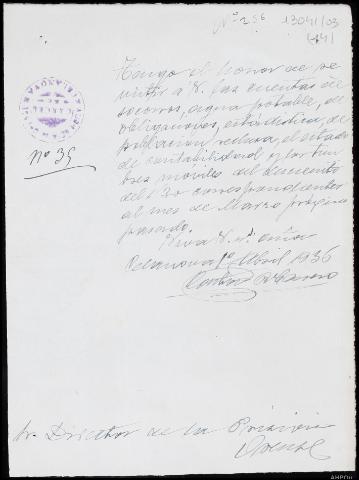 Nº 256 13041/03
(44)
Tengo el honor de re
mitir a V. las cuentas de
socorros, agua potable, de
obligaciones, estadistica, de
poblacion reclusa, el estado
de contabilidad y los tim
bres moviles del descuento
del 1'30 correspondientes
al mes de Marzo próximo
pasado.
nº 35
Viva V. m. años
Celanova 1º Abril 1936
Sr. Director de la Prision
Orense
AHPOU